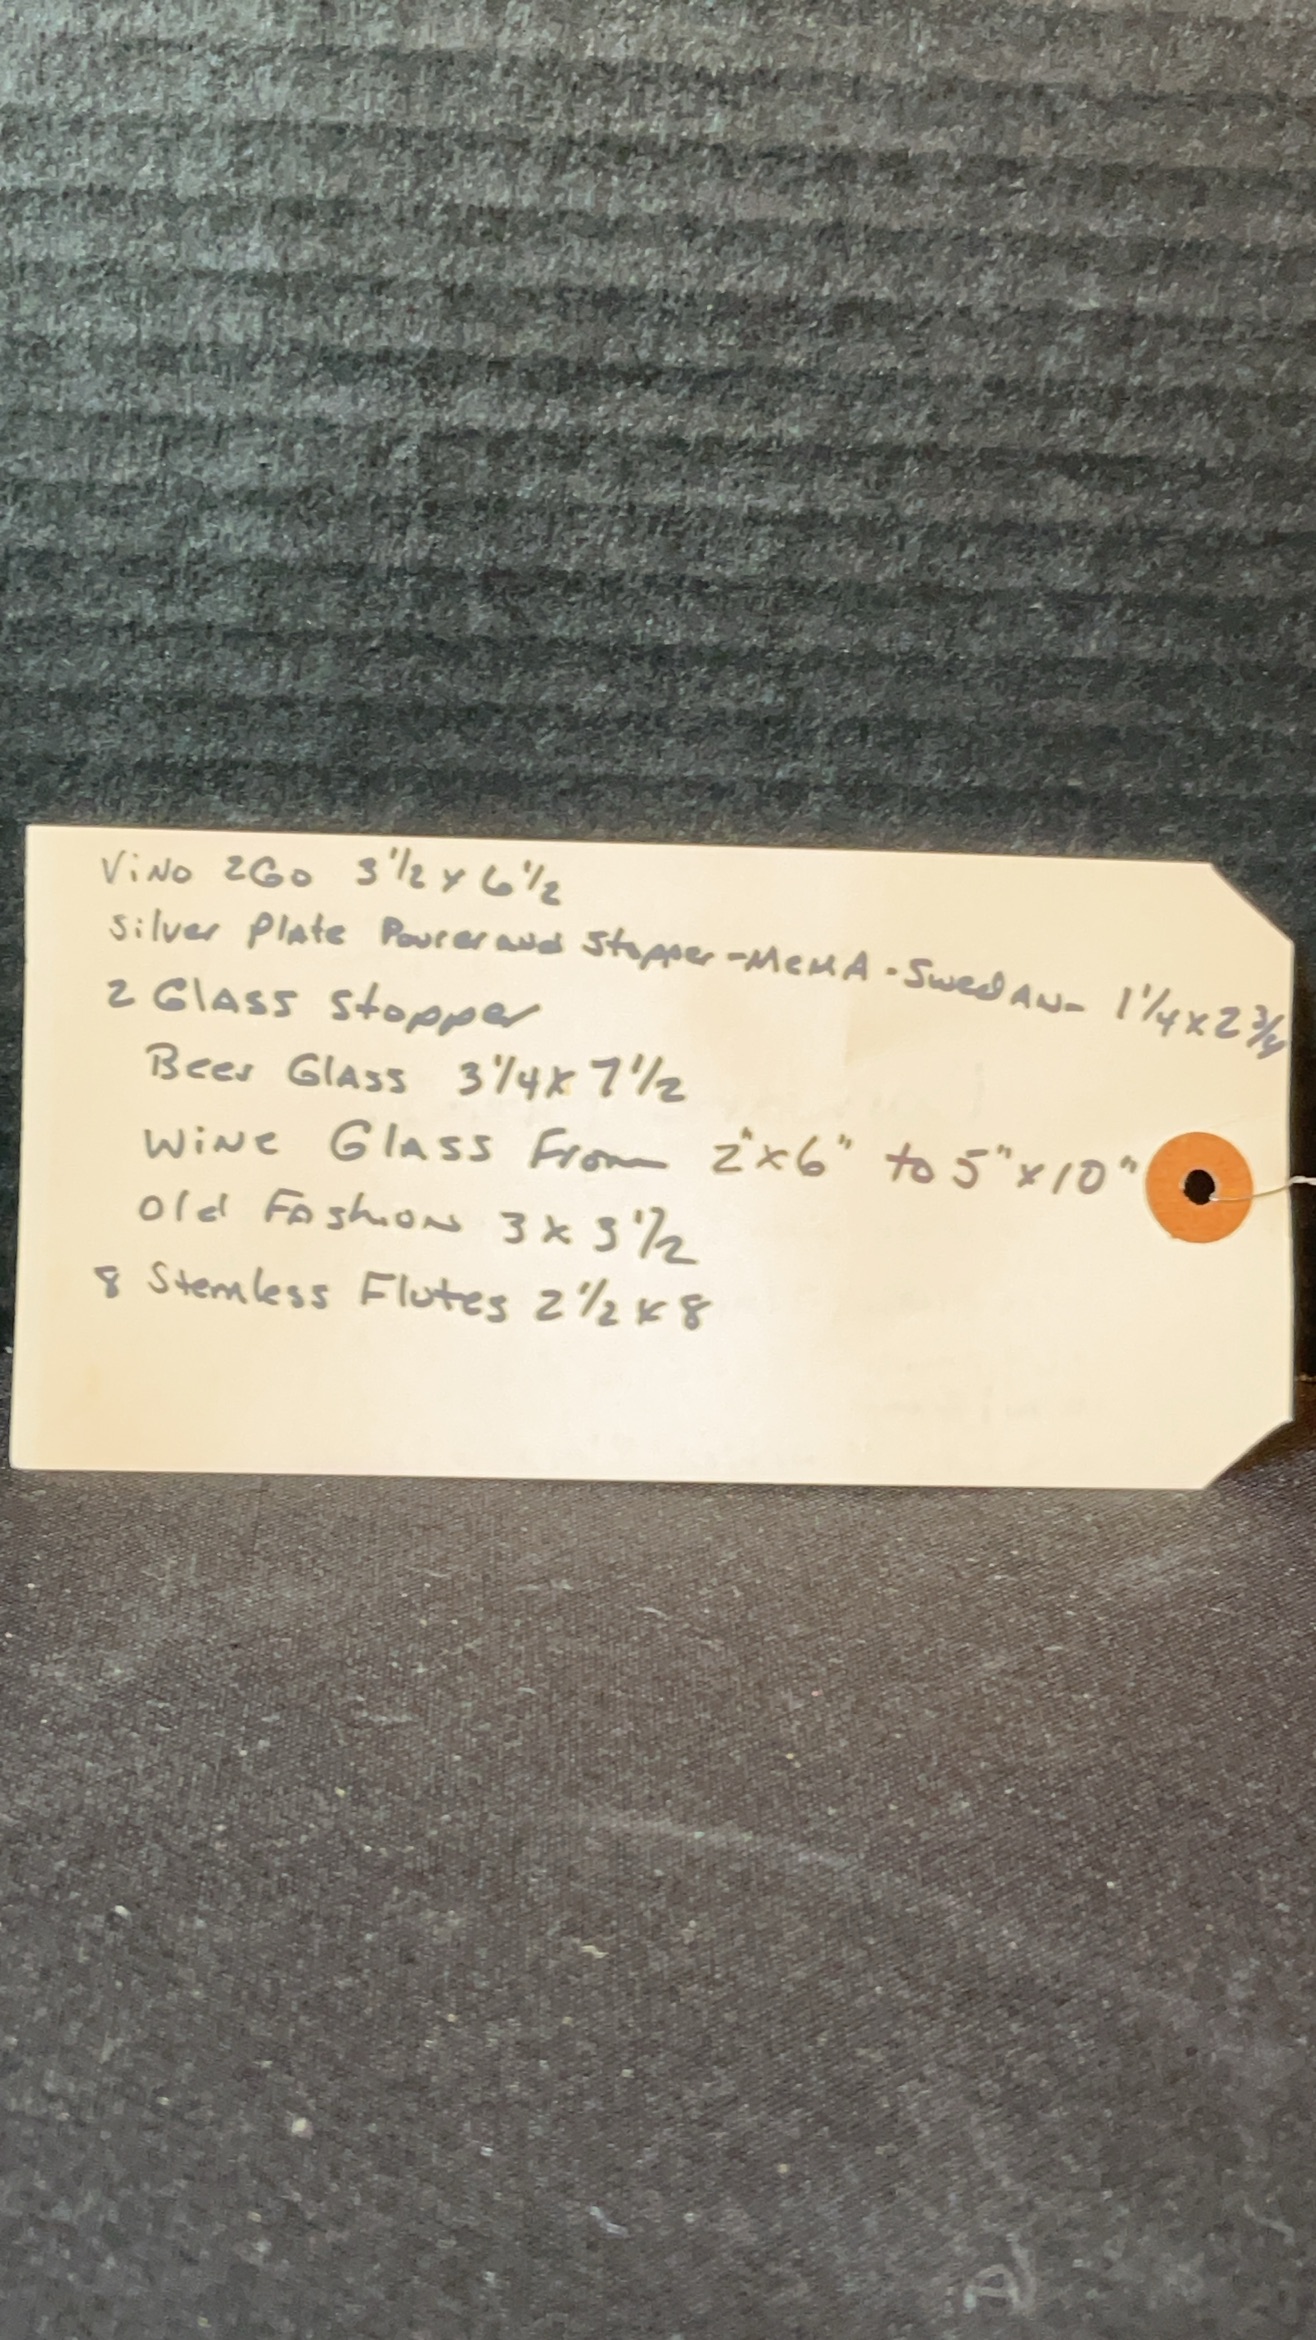 ViNo 2Go 3 1/2 x 6 1/2
Silver Plate Pourer and Stopper - MEMA - SwedAN - 1 1/4 x 2 3/4
2 Glass Stopper
Beer Glass 3 1/4 x 7 1/2
WiNE Glass From 2" x 6" to 5" x 10"
Old Fashion 3 x 3 1/2
8 Stemless Flutes 2 1/2 x 8